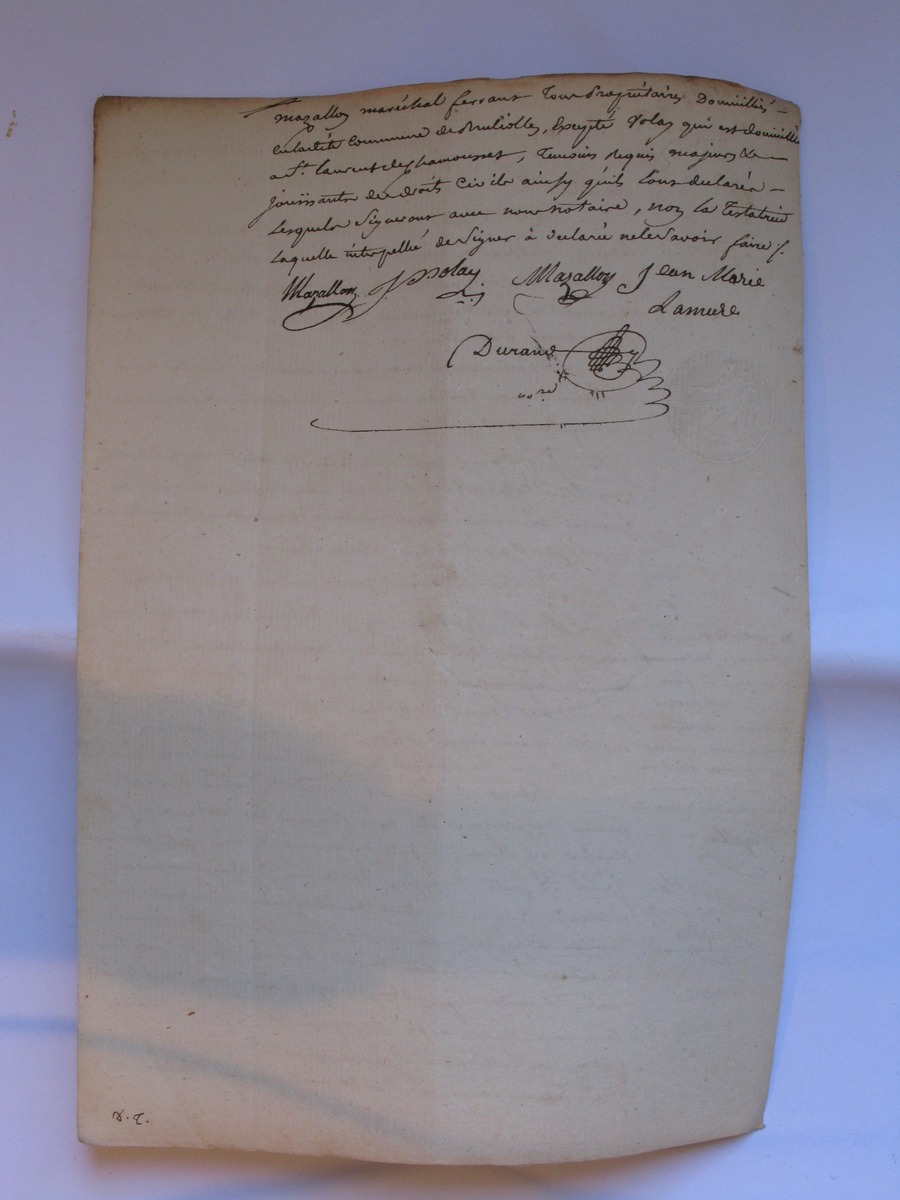 mazallon maréchal ferrant Tous Propriétaires Domicilliés -
en ladite Commune de Brulliolles, Excepté Volay qui est domicillié
a St. laurent de chamousset, Temoins Requis majeurs &
jouissants des droits Civils ainsy qu'ils l'ont declaré -
Lesquels Signeront avec nous notaire, non la Testatrice
Laquelle interpellé de Signer à declaré ne le Savoir faire /.
Mazallon JP Volay Mazallon Jean Marie
Lamure
Durand
nore
D. T.